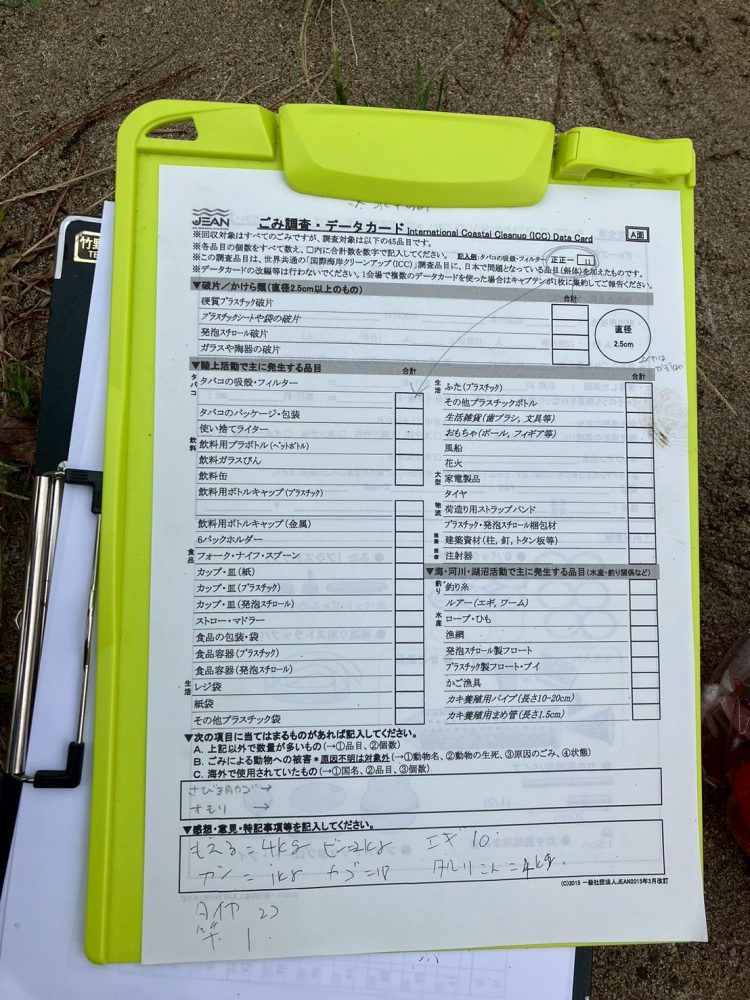 竹野
JEAN
ごみ調査・データカード International Coastal Cleanup (ICC) Data Card
A面
※回収対象はすべてのごみですが、調査対象は以下の45品目です。
※各品目の個数をすべて数え、□内に合計数を数字で記入してください。 記入例:タバコの吸殻・フィルター 正正一 11
※この調査品目は、世界共通の「国際海岸クリーンアップ(ICC)」調査品目に、日本で問題となっている品目(斜体)を加えたものです。
※データカードの改編等は行わないでください。1会場で複数のデータカードを使った場合はキャプテンが1枚に集約してご報告ください。
▼破片/かけら類(直径2.5cm以上のもの) 合計
硬質プラスチック破片
プラスチックシートや袋の破片
発泡スチロール破片
ガラスや陶器の破片
直径
2.5cm
▼陸上活動で主に発生する品目 合計
タバコ
タバコの吸殻・フィルター
タバコのパッケージ・包装
使い捨てライター
飲料
飲料用プラボトル(ペットボトル)
飲料ガラスびん
飲料缶
飲料用ボトルキャップ(プラスチック)
飲料用ボトルキャップ(金属)
6パックホルダー
食品
フォーク・ナイフ・スプーン
カップ・皿(紙)
カップ・皿(プラスチック)
カップ・皿(発泡スチロール)
ストロー・マドラー
食品の包装・袋
食品容器(プラスチック)
食品容器(発泡スチロール)
生活
レジ袋
紙袋
その他プラスチック袋
合計
生活
ふた(プラスチック)
その他プラスチックボトル
生活雑貨(歯ブラシ、文具等)
おもちゃ(ボール、フィギア等)
風船
花火
大型
家電製品
タイヤ
物流
荷造り用ストラップバンド
プラスチック・発泡スチロール梱包材
建築
建築資材(柱、釘、トタン板等)
医療
注射器
▼海・河川・湖沼活動で主に発生する品目(水産・釣り関係など)
釣り
釣り糸
ルアー(エギ、ワーム)
水産
ロープ・ひも
漁網
発泡スチロール製フロート
プラスチック製フロート・ブイ
かご漁具
カキ養殖用パイプ(長さ10-20cm)
カキ養殖用まめ管(長さ1.5cm)
▼次の項目に当てはまるものがあれば記入してください。
A. 上記以外で数量が多いもの(→①品目、②個数)
B. ごみによる動物への被害 *原因不明は対象外(→①動物名、②動物の生死、③原因のごみ、④状態)
C. 海外で使用されていたもの(→①国名、②品目、③個数)
オモリ →
▼感想・意見・特記事項等を記入してください。
もえる=4kg ビン=2kg エギ 10
カン=1kg カゴ=17
(C)2015 一般社団法人JEAN2015年3月改訂
タイヤ 2コ